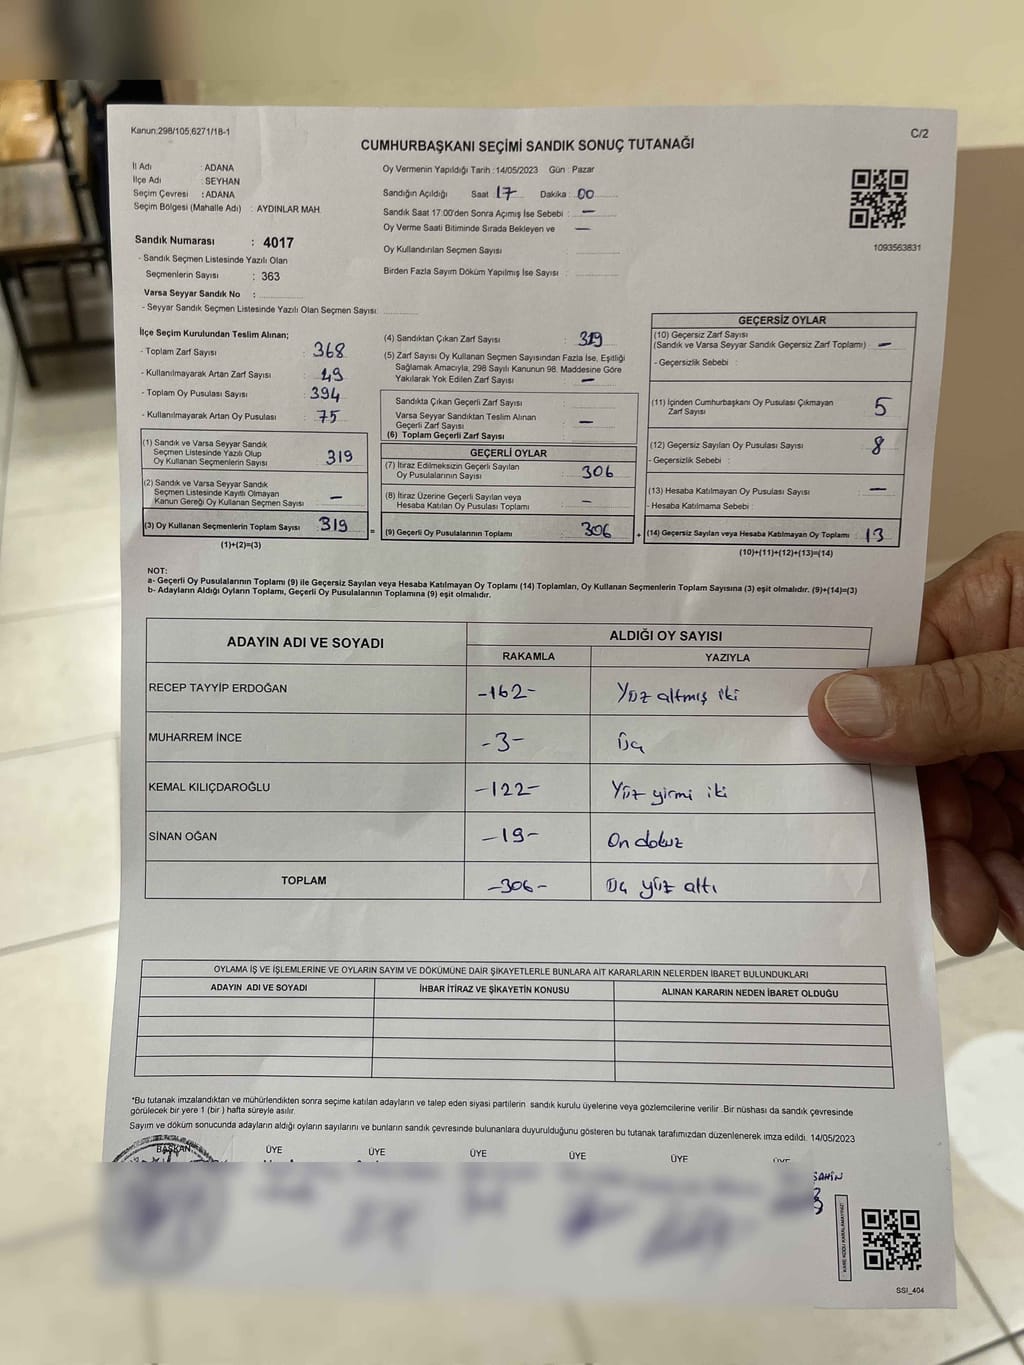 Kanun:298/105,6271/18-1
C/2
CUMHURBAŞKANI SEÇİMİ SANDIK SONUÇ TUTANAĞI
İl Adı : ADANA
İlçe Adı : SEYHAN
Seçim Çevresi : ADANA
Seçim Bölgesi (Mahalle Adı) : AYDINLAR MAH.
Sandık Numarası : 4017
- Sandık Seçmen Listesinde Yazılı Olan
Seçmenlerin Sayısı : 363
Varsa Seyyar Sandık No :
- Seyyar Sandık Seçmen Listesinde Yazılı Olan Seçmen Sayısı:
Oy Vermenin Yapıldığı Tarih :14/05/2023 Gün : Pazar
Sandığın Açıldığı Saat : 17 Dakika : 00
Sandık Saat 17:00'den Sonra Açımış İse Sebebi : —
Oy Verme Saati Bitiminde Sırada Bekleyen ve —
Oy Kullandırılan Seçmen Sayısı :
Birden Fazla Sayım Döküm Yapılmış İse Sayısı :
1093563831
İlçe Seçim Kurulundan Teslim Alınan;
- Toplam Zarf Sayısı : 368
- Kullanılmayarak Artan Zarf Sayısı : 49
- Toplam Oy Pusulası Sayısı : 394
- Kullanılmayarak Artan Oy Pusulası : 75
(1) Sandık ve Varsa Seyyar Sandık
Seçmen Listesinde Yazılı Olup
Oy Kullanan Seçmenlerin Sayısı 319
(2) Sandık ve Varsa Seyyar Sandık
Seçmen Listesinde Kayıtlı Olmayan
Kanun Gereği Oy Kullanan Seçmen Sayısı —
(3) Oy Kullanan Seçmenlerin Toplam Sayısı 319 =
(1)+(2)=(3)
(4) Sandıktan Çıkan Zarf Sayısı : 319
(5) Zarf Sayısı Oy Kullanan Seçmen Sayısından Fazla İse, Eşitliği
Sağlamak Amacıyla, 298 Sayılı Kanunun 98. Maddesine Göre
Yakılarak Yok Edilen Zarf Sayısı : —
Sandıkta Çıkan Geçerli Zarf Sayısı :
Varsa Seyyar Sandıktan Teslim Alınan
Geçerli Zarf Sayısı : —
(6) Toplam Geçerli Zarf Sayısı
GEÇERLİ OYLAR
(7) İtiraz Edilmeksizin Geçerli Sayılan
Oy Pusulalarının Sayısı : 306
(8) İtiraz Üzerine Geçerli Sayılan veya
Hesaba Katılan Oy Pusulası Toplamı : —
(9) Geçerli Oy Pusulalarının Toplamı 306 +
GEÇERSİZ OYLAR
(10) Geçersiz Zarf Sayısı
(Sandık ve Varsa Seyyar Sandık Geçersiz Zarf Toplamı) —
- Geçersizlik Sebebi :
(11) İçinden Cumhurbaşkanı Oy Pusulası Çıkmayan
Zarf Sayısı 5
(12) Geçersiz Sayılan Oy Pusulası Sayısı : 8
- Geçersizlik Sebebi :
(13) Hesaba Katılmayan Oy Pusulası Sayısı : —
- Hesaba Katılmama Sebebi :
(14) Geçersiz Sayılan veya Hesaba Katılmayan Oy Toplamı 13
(10)+(11)+(12)+(13)=(14)
NOT:
a- Geçerli Oy Pusulalarının Toplamı (9) ile Geçersiz Sayılan veya Hesaba Katılmayan Oy Toplamı (14) Toplamları, Oy Kullanan Seçmenlerin Toplam Sayısına (3) eşit olmalıdır. (9)+(14)=(3)
b- Adayların Aldığı Oyların Toplamı, Geçerli Oy Pusulalarının Toplamına (9) eşit olmalıdır.
ADAYIN ADI VE SOYADI ALDIĞI OY SAYISI
RAKAMLA YAZIYLA
RECEP TAYYİP ERDOĞAN -162- Yüz altmış iki
MUHARREM İNCE -3- Üç
KEMAL KILIÇDAROĞLU -122- Yüz yirmi iki
SİNAN OĞAN -19- On dokuz
TOPLAM -306- Üç yüz altı
OYLAMA İŞ VE İŞLEMLERİNE VE OYLARIN SAYIM VE DÖKÜMÜNE DAİR ŞİKAYETLERLE BUNLARA AİT KARARLARIN NELERDEN İBARET BULUNDUKLARI
ADAYIN ADI VE SOYADI İHBAR İTİRAZ VE ŞİKAYETİN KONUSU ALINAN KARARIN NEDEN İBARET OLDUĞU
*Bu tutanak imzalandıktan ve mühürlendikten sonra seçime katılan adayların ve talep eden siyasi partilerin sandık kurulu üyelerine veya gözlemcilerine verilir .Bir nüshası da sandık çevresinde
görülecek bir yere 1 (bir ) hafta süreyle asılır.
Sayım ve döküm sonucunda adayların aldığı oyların sayılarını ve bunların sandık çevresinde bulunanlara duyurulduğunu gösteren bu tutanak tarafımızdan düzenlenerek imza edildi. 14/05/2023
BAŞKAN ÜYE ÜYE ÜYE ÜYE ÜYE ÜYE
ŞAHİN
KARE KODU KARALAMAYINIZ!
SSI_404